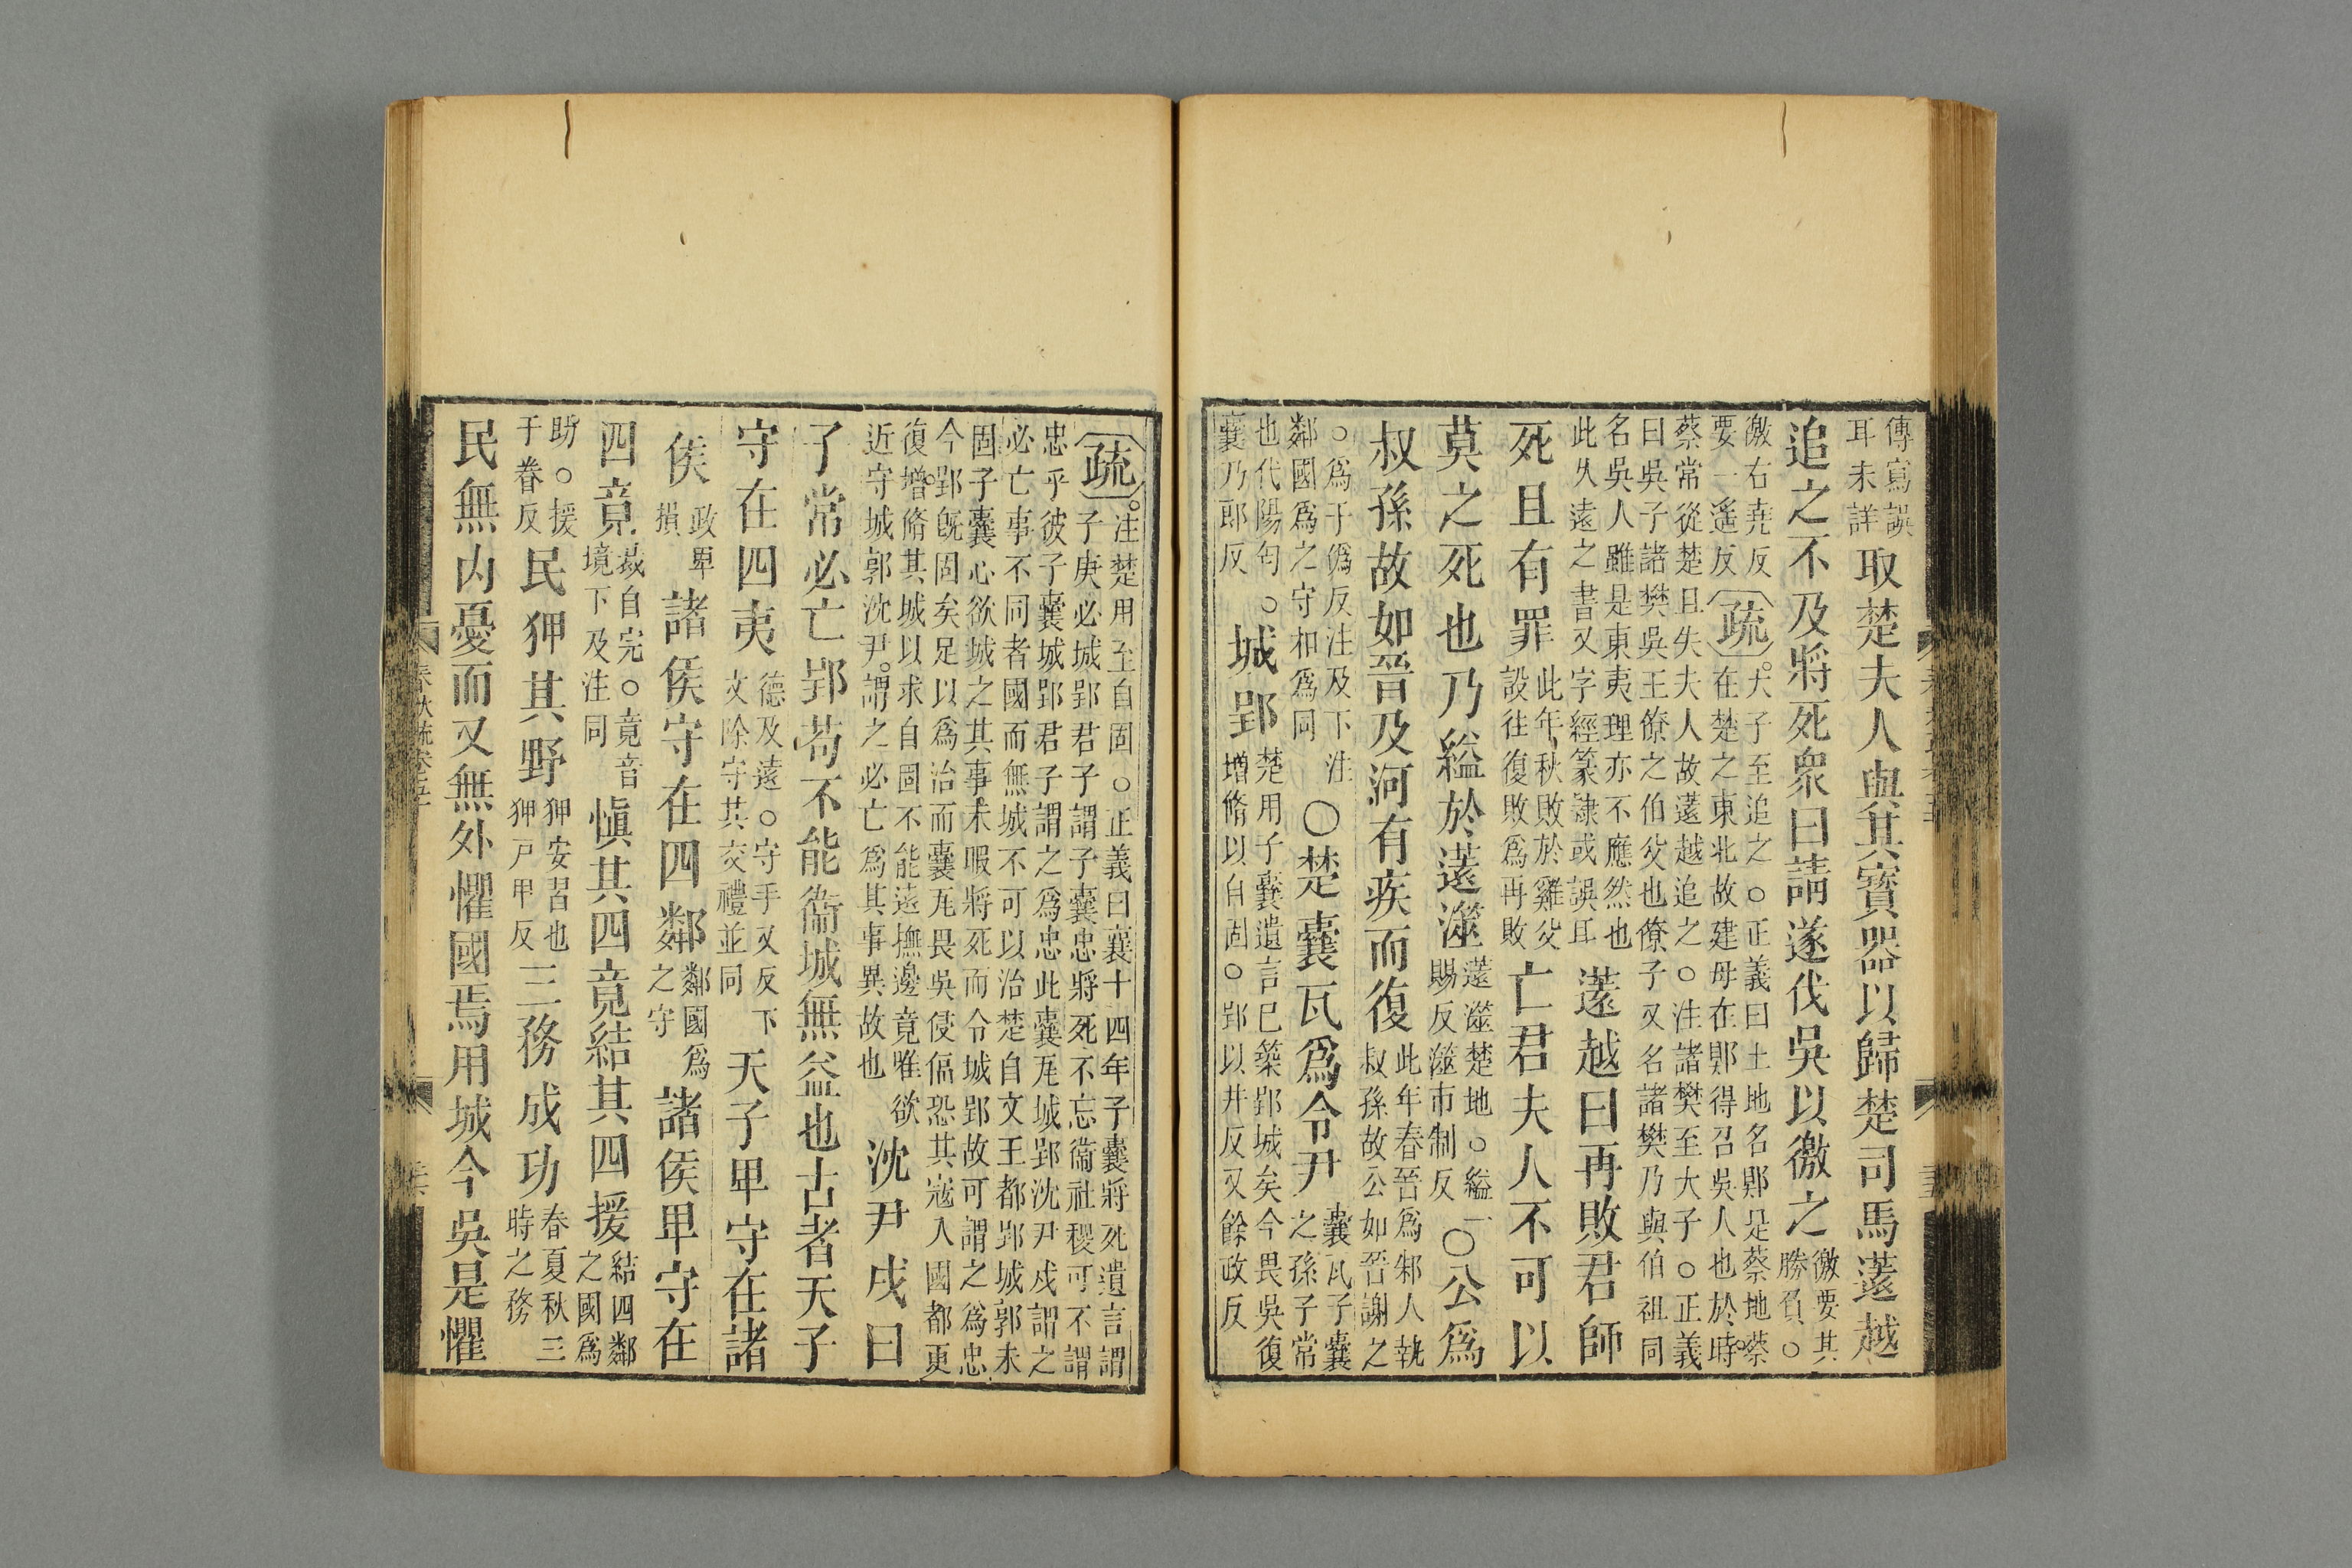 傳寫誤
耳未詳
取楚夫人與其寶器以歸楚司馬薳越
追之不及將死衆曰請遂伐吳以徼之
徼要其
勝負○
徼右堯反
要一遙反
疏
大子至追之○正義曰土地名郹是蔡地蔡
在楚之東北故建母在郹得召吳人也於時
蔡常從楚且失夫人故薳越追之○注諸樊至大子○正義
曰吳子諸樊吳王僚之伯父也僚子又名諸樊乃與伯祖同
名吳人雖是東夷理亦不應然也
此久遠之書又字經篆隷或誤耳
薳越曰再敗君師
死且有罪
此年秋敗於雞父
設往復敗爲再敗
亡君夫人不可以
莫之死也乃縊於薳澨
薳澨楚地○縊一
賜反澨市制反
○公爲
叔孫故如晉及河有疾而復
此年春晉爲邾人執
叔孫故公如晉謝之
○爲于僞反注及下注
鄰國爲之守和爲同
○楚囊瓦爲令尹
囊瓦子囊
之孫子常
也代陽匄○
囊乃郎反
城郢
楚用子囊遺言巳築郢城矣今畏吳復
增脩以自固○郢以井反又餘政反
疏
注楚用至自固○正義曰襄十四年子囊將死遺言謂
子庚必城郢君子謂子囊忠將死不忘衞社稷可不謂
忠乎彼子囊城郢君子謂之爲忠此囊瓦城郢沈尹戍謂之
必亡事不同者國而無城不可以治楚自文王都郢城郭未
固子囊心欲城之其事未暇將死而令城郢故可謂之爲忠
今郢旣固矣足以爲治而囊瓦畏吳侵偪恐其寇入國都更
復增脩其城以求自固不能遠撫邊竟唯欲
近守城郭沈尹謂之必亡爲其事異故也
沈尹戍曰
子常必亡郢苟不能衞城無益也古者天子
守在四夷
德及遠○守手又反下
文除守其交禮並同
天子卑守在諸
侯
政卑
損
諸侯守在四鄰
鄰國爲
之守
諸侯卑守在
四竟
裁自完○竟音
境下及注同
愼其四竟結其四援
結四鄰
之國爲
助○援
于眷反
民狎其野
狎安習也
狎戸甲反
三務成功
春夏秋三
時之務
民無內憂而又無外懼國焉用城今吳是懼